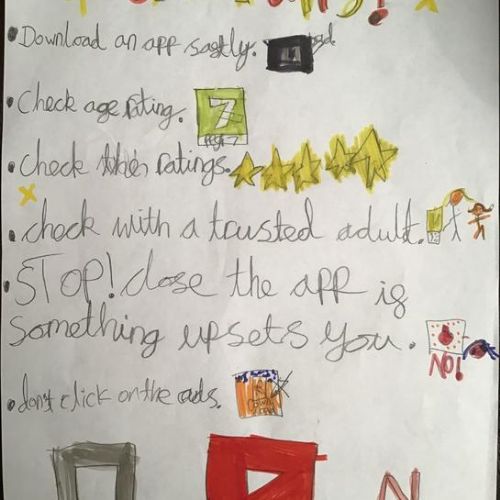 • Download an app saftly.
• Check age rating. 7
• Check the ratings.
• check with a trusted adult.
• STOP! close the app is
something upsets you.
NO!
• don't click on the ads.
N